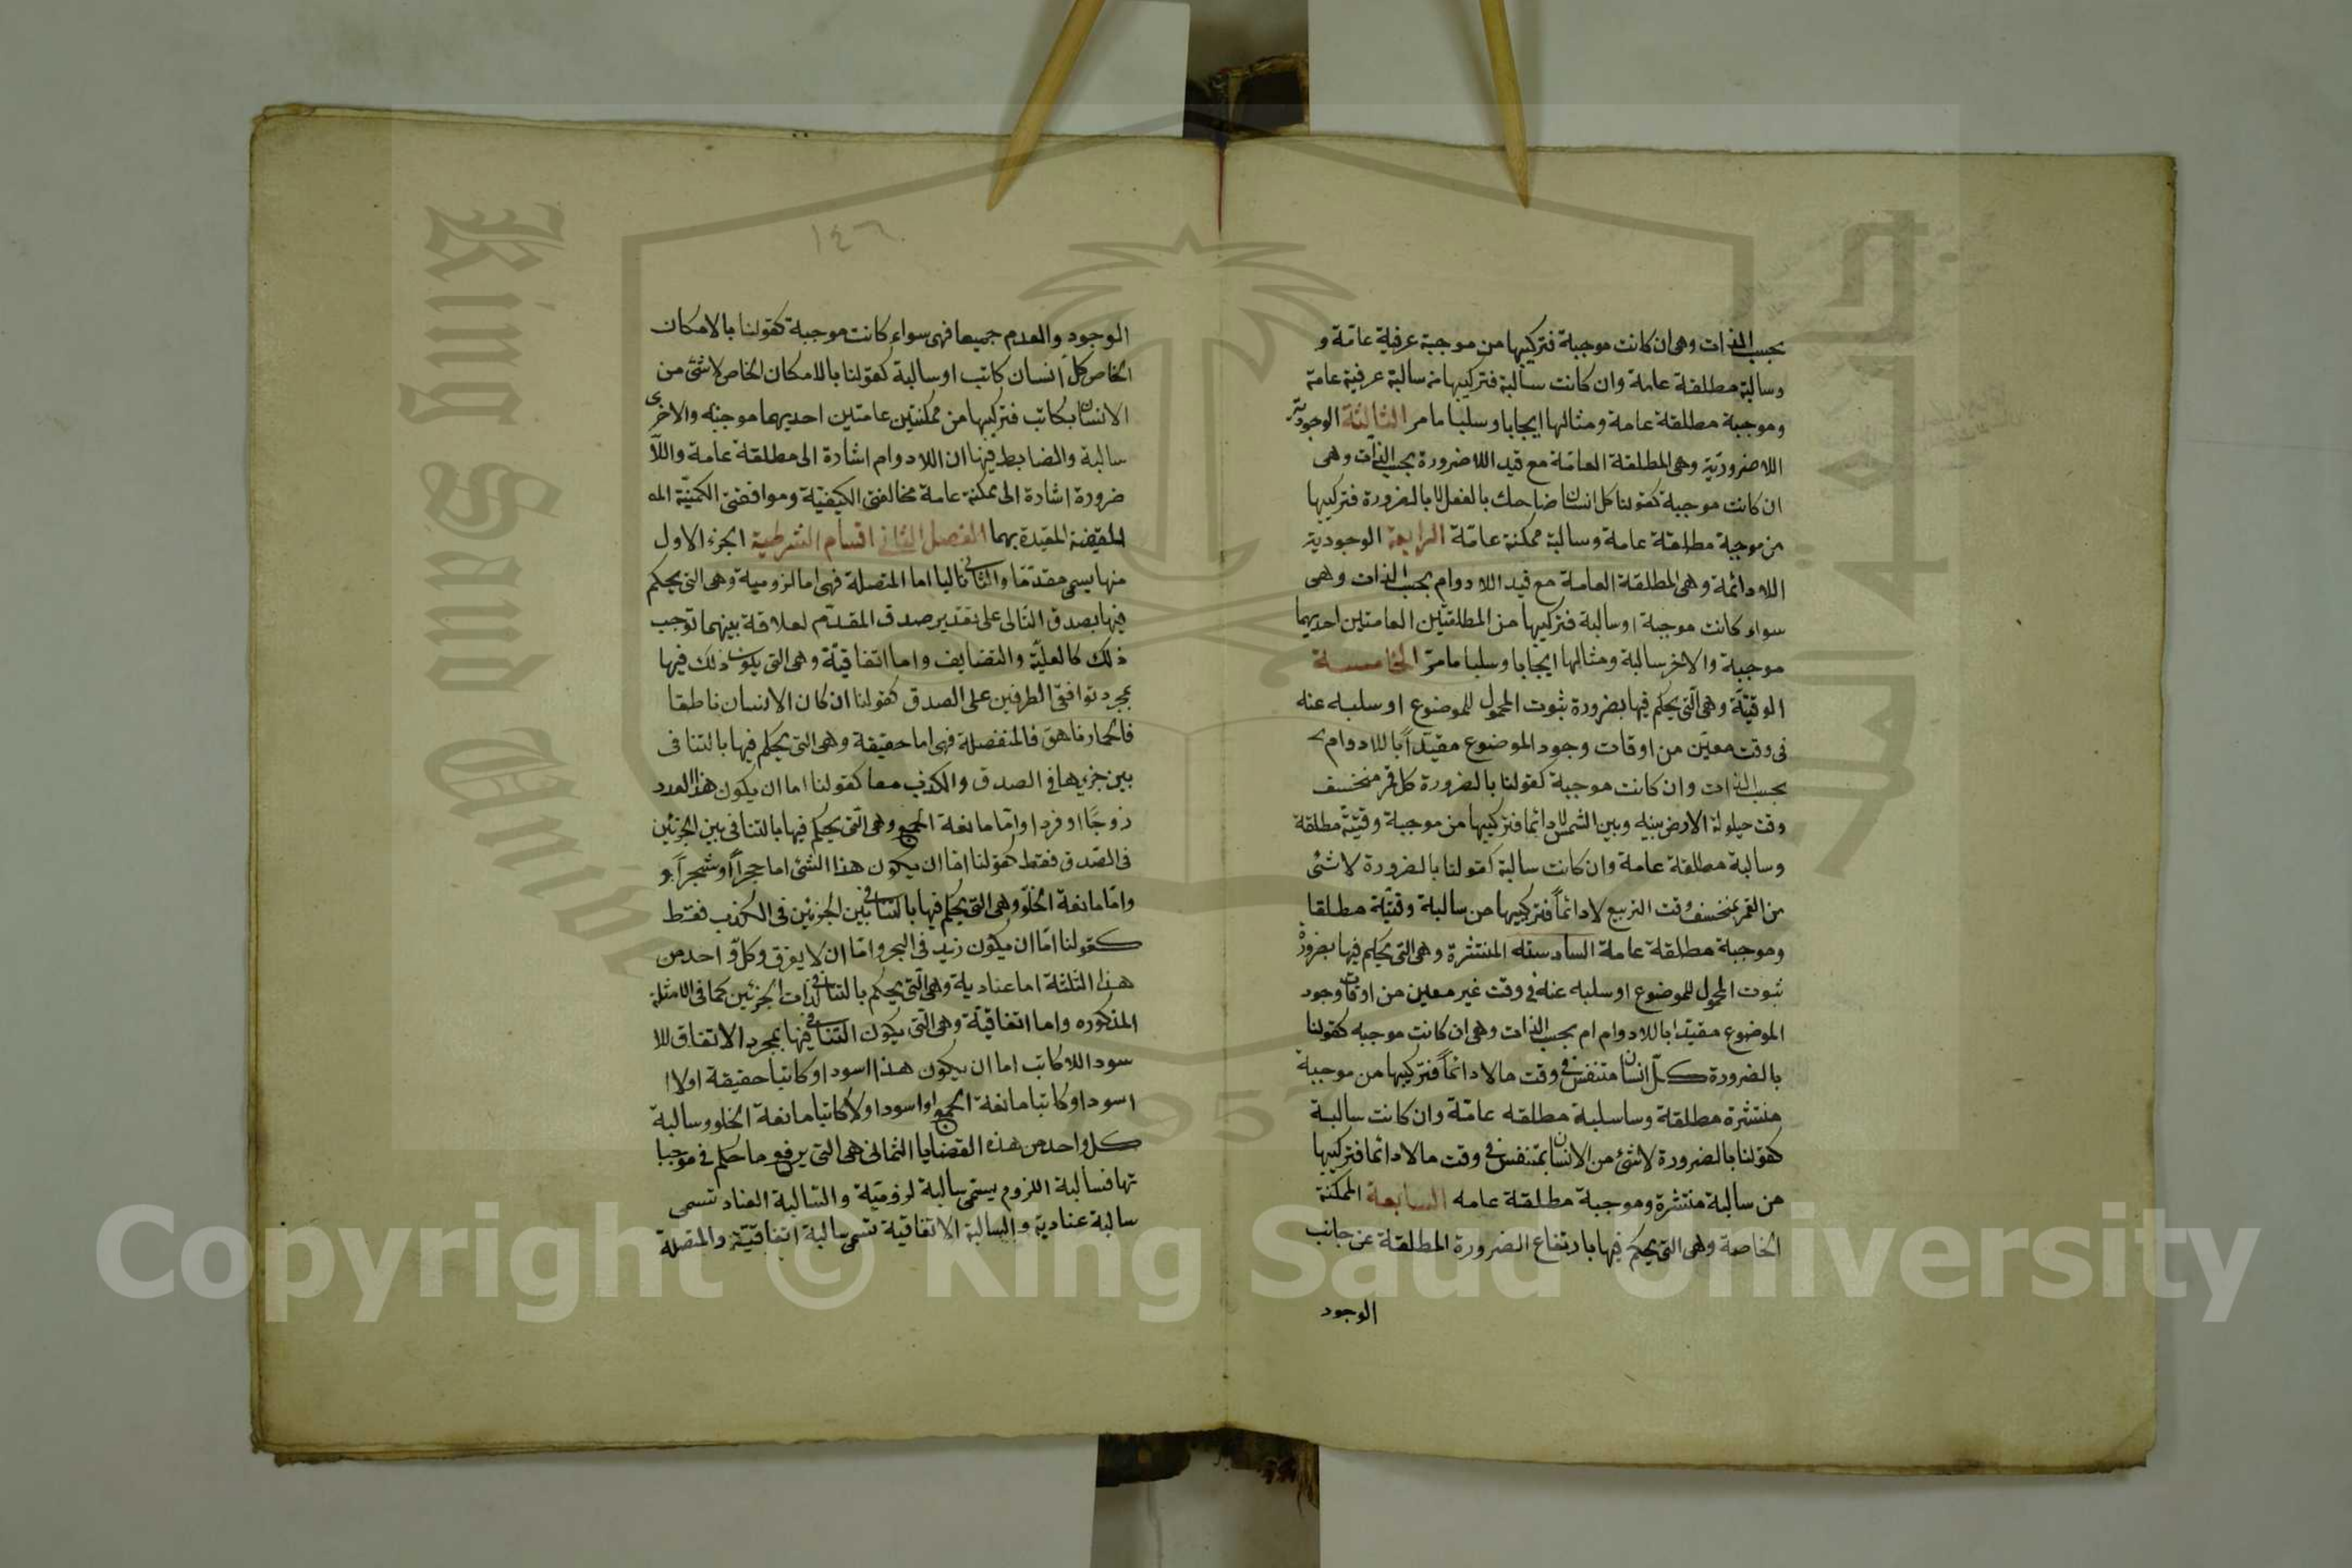 بحسب الذات وهى ان كانت موجبة فتركيبها من موجبة عرفية عامة و
وسالبة مطلقة عامة وان كانت سالبة فتركيبها من سالبة عرفية عامة
وموجبة مطلقة عامة ومثالها ايجابا وسلبا ما مر الثالثة الوجودية
اللاضرورية وهى المطلقة العامة مع قيد اللاضرورة بحسب الذات وهى
ان كانت موجبة كقولنا كل انسان ضاحك بالفعل لا بالضرورة فتركيبها
من موجبة مطلقة عامة وسالبة ممكنة عامة الرابعة الوجودية
اللادائمة وهى المطلقة العامة مع قيد اللادوام بحسب الذات وهى
سواء كانت موجبة او سالبة فتركيبها من المطلقتين العامتين احديهما
موجبة والاخر سالبة ومثالها ايجابا وسلبا ما مر الخامسة
الوقتية وهى التى يحكم فيها بضرورة ثبوت المحمول للموضوع او سلبه عنه
فى وقت معين من اوقات وجود الموضوع مقيدا باللادوام
بحسب الذات وان كانت موجبة كقولنا بالضرورة كل قمر منخسف
وقت حيلولة الارض بينه وبين الشمس لا دائما فتركيبها من موجبة وقتية مطلقة
وسالبة مطلقة عامة وان كانت سالبة كقولنا بالضرورة لا شئ
من القمر بمنخسف وقت التربيع لا دائماً فتركيبها من سالبة وقتية مطلقا
وموجبة مطلقة عامة السادسته المنتشرة وهى التى يحكم فيها بضرورة
ثبوت المحمول للموضوع او سلبه عنه فى وقت غير معين من اوقات وجود
الموضوع مقيدا باللادوام ام بحسب الذات وهى ان كانت موجبه كقولنا
بالضرورة كل انسان متنفس فى وقت ما لا دائماً فتركيبها من موجبة
منتشرة مطلقة وساسلبة مطلقه عامة وان كانت سالبة
كقولنا بالضرورة لا شئ من الانسان بمتنفس فى وقت ما لا دائما فتركيبها
من سالبة منتشرة وموجبة مطلقة عامه السابعة الممكنة
الخاصة وهى التى يحكم فيها بارتفاع الضرورة المطلقة عن جانب
الوجود
١٤٦
الوجود والعدم جميعا فهى سواء كانت موجبة كقولنا بالامكان
الخاص كل انسان كاتب او سالبة كقولنا بالامكان الخاص لا شئ من
الانسان بكاتب فتركيبها من ممكنتين عامتين احديهما موجبه والاخرى
سالبة والضابط فيها ان اللادوام اشارة الى مطلقة عامة واللا
ضرورة اشارة الى ممكنة عامة مخالفتى الكيفية وموافقتى الكمية
المقيدة بهما الفصل الثانى اقسام الشرطية الجزء الاول
منها يسمى مقدمّا والثانى تاليا اما المتصلة فهى اما لزومية وهى التى يحكم
فيها بصدق التالى على تقدير صدق المقدم لعلاقة بينهما توجب
ذلك كالعلية والتضايف واما اتفاقية وهى التى يكون ذلك فيها
بمجرد توافق الطرفين على الصدق كقولنا ان كان الانسان ناطقا
فالحمار ناهق فالمنفصلة فهى اما حقيقة وهى التى يحكم فيها بالتنافى
بين جزءيها فى الصدق والكذب معا كقولنا اما ان يكون هذا العدد
زوجًا او فردا واما مانعة الجمع وهى التى يحكم فيها بالتنافى بين الجزئين
فى الصدق فقط كقولنا اما ان يكون هذا الشئ اما حجراً او شجراً و
واما مانعة الخلو وهى التى يحكم فيها بالتنافى بين الجزئين فى الكذب فقط
كقولنا اما ان يكون زيد فى البحر واما ان لا يغرق وكل واحد من
هذا الثلثة اما عنادية وهى التى يحكم بالتنافى لذات الجزئين كما فى الامثلة
المذكوره واما اتفاقية وهى التى يكون التنافى فيها بمجرد الاتفاق للا
سود اللاكاتب اما ان يكون هذا اسود او كاتبا حقيقة او لا
اسود او كاتبا مانعة الجمع او اسود او لا كاتبا مانعة الخلو وسالبة
كل واحد من هذه القضايا الثمانى هى التى يرفع ما حكم فى موجبا
تها فسالبة اللزوم يسمى سالبة لزومية والسالبة العناد تسمى
سالبة عنادية والسالبة الاتفاقية تسمى سالبة اتفاقية والمتصلة
Copyright © King Saud University